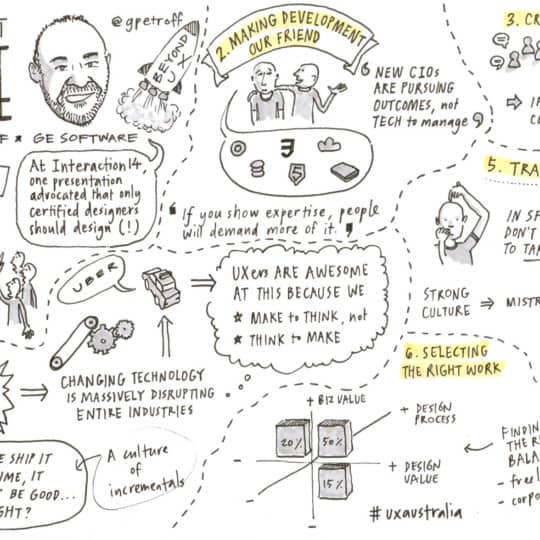 @gpetroff
BEYOND
UX
F * GE SOFTWARE
At Interaction14,
one presentation
advocated that only
certified designers
should design (!)
2. MAKING DEVELOPMENT
OUR FRIEND
3
5
" If you show expertise, people
will demand more of it. "
NEW CIOs
ARE PURSUING
OUTCOMES, not
TECH to manage
3. CR
⇒ IF
CO
5. TRA
IN SF
DON'T
TO TAK
STRONG
CULTURE ⇒ MISTR
UBER
CHANGING TECHNOLOGY
IS MASSIVELY DISRUPTING
ENTIRE INDUSTRIES
UXers ARE AWESOME
AT THIS BECAUSE WE
★ MAKE to THINK, not
★ THINK to MAKE
E SHIP IT
IME, IT
BE GOOD...
GHT?
A culture
of
incrementals
6. SELECTING
THE RIGHT WORK
+ BIZ VALUE
+ DESIGN
PROCESS
20% 50%
+ DESIGN
VALUE
15%
FINDIN
THE RI
BALA
- freel
- corpo
#uxaustralia